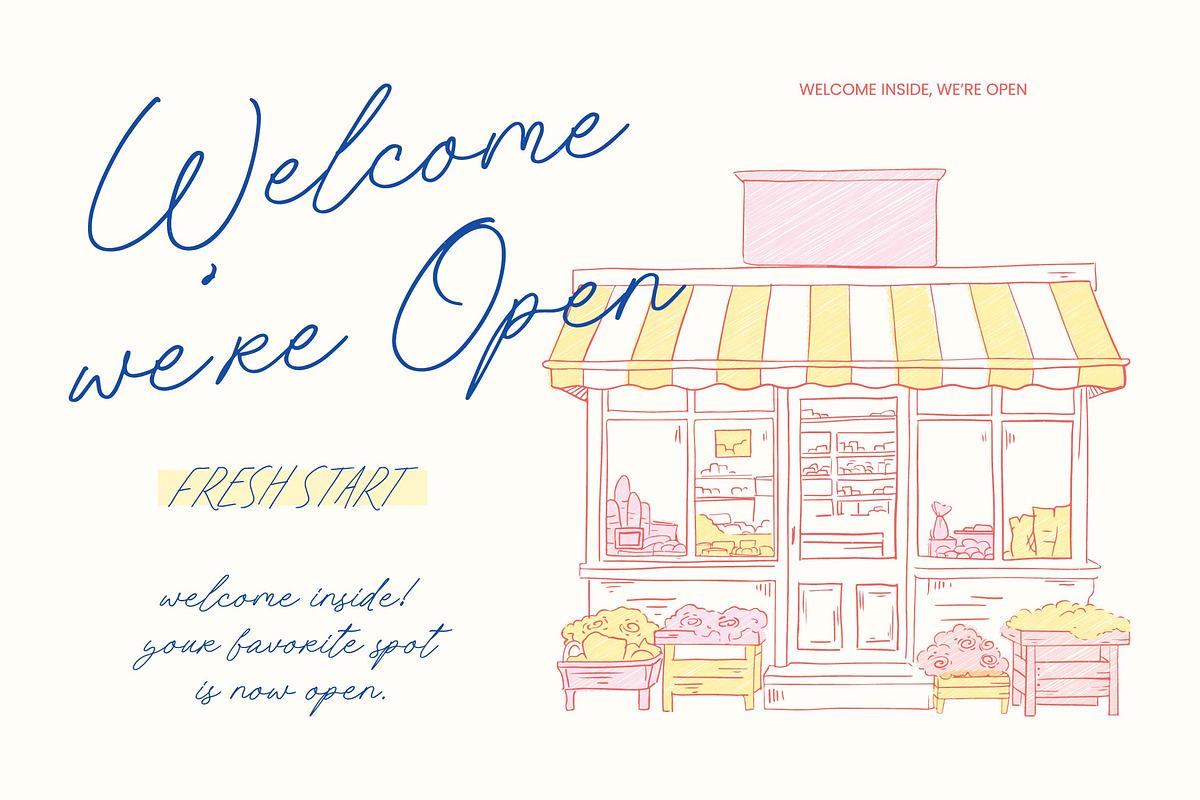 Welcome
we're Open
WELCOME INSIDE, WE'RE OPEN
FRESH START
welcome inside!
your favorite spot
is now open.